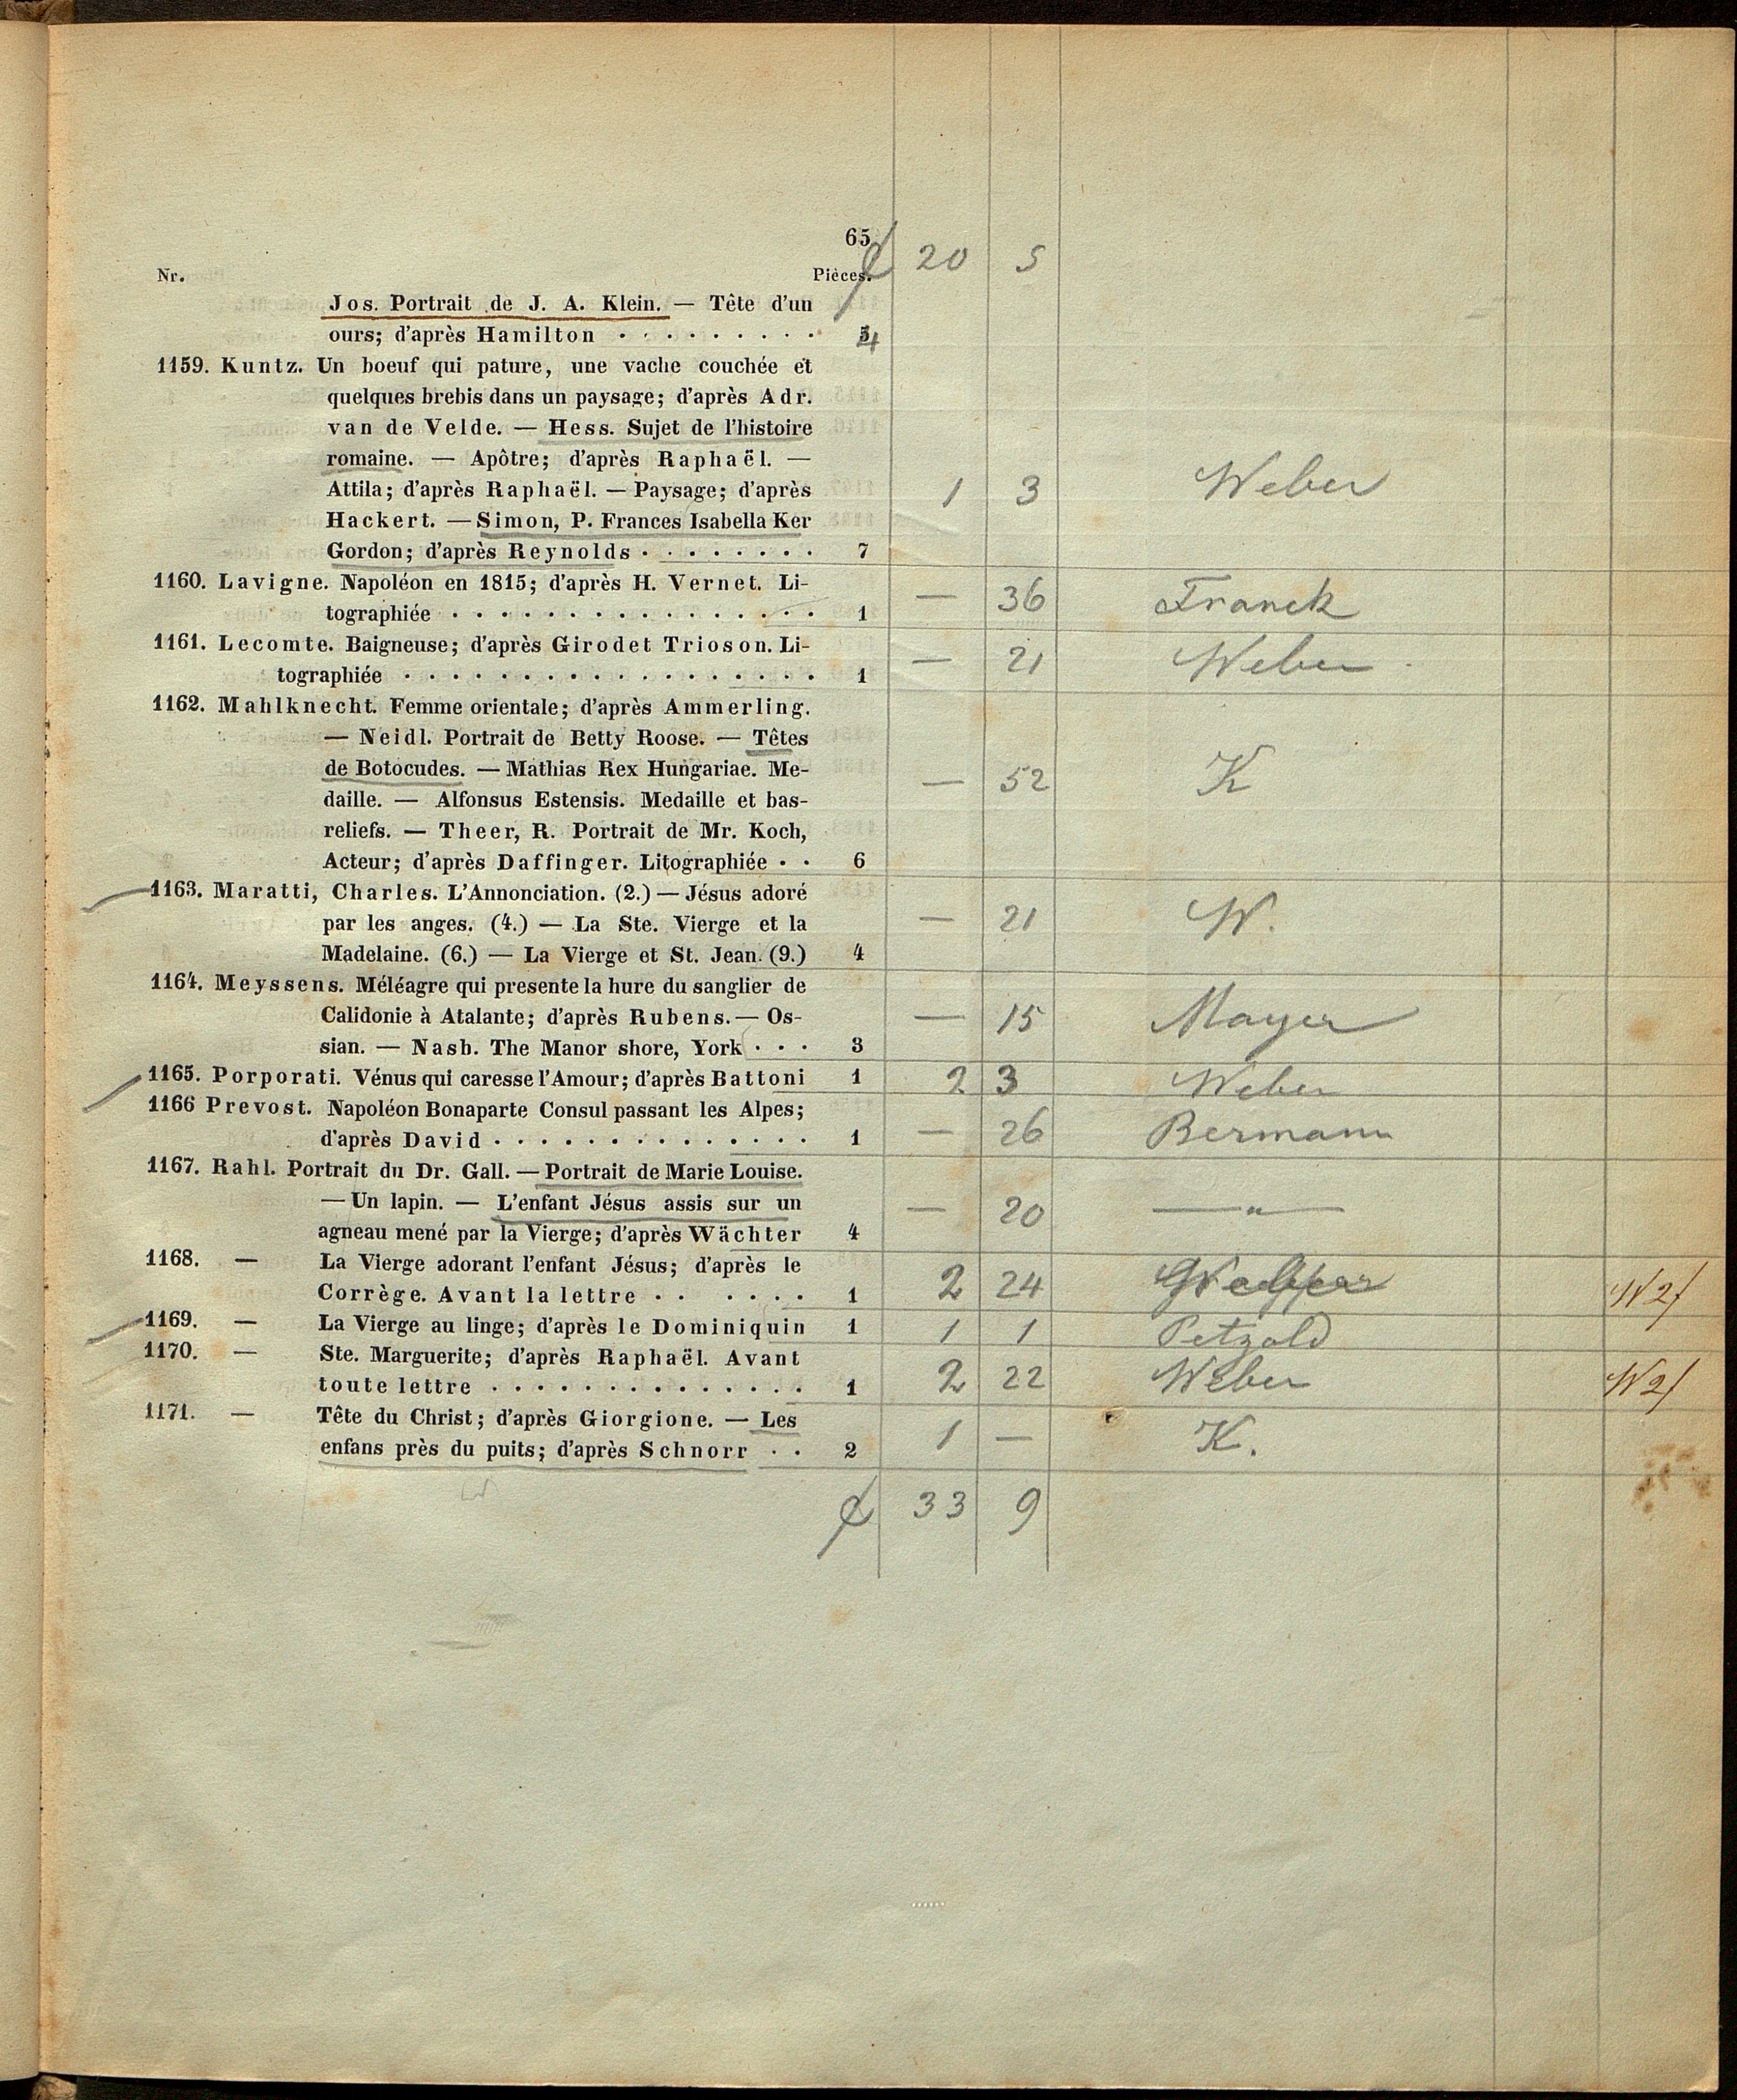 65
20 5
Nr. Pièces.
Jos. Portrait de J. A. Klein. — Tête d'un
ours; d'après Hamilton . . . . . . . . . 4
1159. Kuntz. Un boeuf qui pature, une vache couchée et
quelques brebis dans un paysage; d'après Adr.
van de Velde. — Hess. Sujet de l'histoire
romaine. — Apôtre; d'après Raphaël. —
Attila; d'après Raphaël. — Paysage; d'après 1 3 Weber
Hackert. — Simon, P. Frances Isabella Ker
Gordon; d'après Reynolds . . . . . . . . 7
1160. Lavigne. Napoléon en 1815; d'après H. Vernet. Li- — 36 Franck
tographiée . . . . . . . . . . . . . . . 1
1161. Lecomte. Baigneuse; d'après Girodet Trioson. Li- — 21 Weber
tographiée . . . . . . . . . . . . . . . . . 1
1162. Mahlknecht. Femme orientale; d'après Ammerling.
— Neidl. Portrait de Betty Roose. — Têtes
de Botocudes. — Mathias Rex Hungariae. Me- — 52 K
daille. — Alfonsus Estensis. Medaille et bas-
reliefs. — Theer, R. Portrait de Mr. Koch,
Acteur; d'après Daffinger. Litographiée . . 6
1163. Maratti, Charles. L'Annonciation. (2.) — Jésus adoré
par les anges. (4.) — La Ste. Vierge et la — 21 W.
Madelaine. (6.) — La Vierge et St. Jean. (9.) 4
1164. Meyssens. Méléagre qui presente la hure du sanglier de
Calidonie à Atalante; d'après Rubens. — Os- — 15 Mayer
sian. — Nash. The Manor shore, York . . . 3
1165. Porporati. Vénus qui caresse l'Amour; d'après Battoni 1 2 3 Weber
1166 Prevost. Napoléon Bonaparte Consul passant les Alpes;
d'après David . . . . . . . . . . . . . . 1 — 26 Bermann
1167. Rahl. Portrait du Dr. Gall. — Portrait de Marie Louise.
— Un lapin. — L'enfant Jésus assis sur un — 20 — " —
agneau mené par la Vierge; d'après Wächter 4
1168. — La Vierge adorant l'enfant Jésus; d'après le
Corrège. Avant la lettre . . . . . . 1 2 24 W2/
1169. — La Vierge au linge; d'après le Dominiquin 1 1 1 Petzold
1170. — Ste. Marguerite; d'après Raphaël. Avant
toute lettre . . . . . . . . . . . . . . 1 2 22 Weber W2/
1171. — Tête du Christ; d'après Giorgione. — Les
enfans près du puits; d'après Schnorr . . 2 1 — K.
33 9